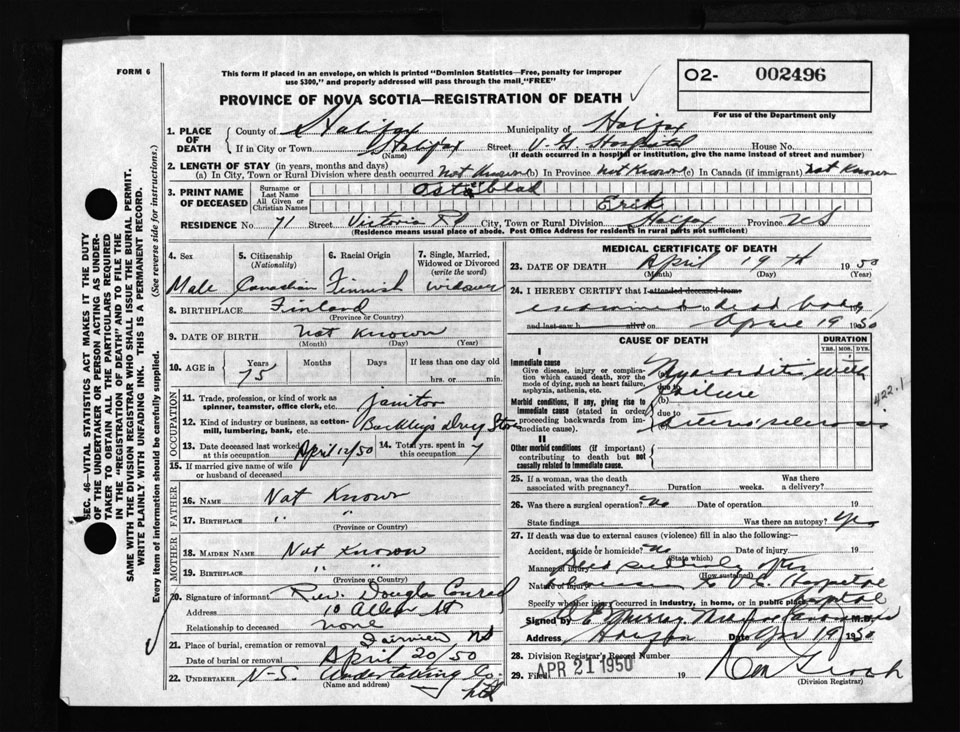 FORM 6
This form if placed in an envelope, on which is printed "Dominion Statistics—Free, penalty for improper
use $300," and properly addressed will pass through the mail "FREE"
O2- 002496
PROVINCE OF NOVA SCOTIA—REGISTRATION OF DEATH
For use of the Department only
1. PLACE OF DEATH { County of Halifax Municipality of Halifax
If in City or Town Halifax (Name) Street V. G. Hospital House No.
(If death occurred in a hospital or institution, give the name instead of street and number)
2. LENGTH OF STAY (in years, months and days)
(a) In City, Town or Rural Division where death occurred Not Known (b) In Province Not Known (c) In Canada (if immigrant) Not Known
3. PRINT NAME OF DECEASED { Surname or Last Name Osterblad
All Given or Christian Names Erik
RESIDENCE No. 71 Street Victoria Rd City, Town or Rural Division Halifax Province NS
(Residence means usual place of abode. Post Office Address for residents in rural parts not sufficient)
4. Sex 5. Citizenship (Nationality) 6. Racial Origin 7. Single, Married, Widowed or Divorced (write the word)
Male Canadian Finnish widower
8. BIRTHPLACE Finland
(Province or Country)
9. DATE OF BIRTH Not Known
(Month) (Day) (Year)
10. AGE in { Years Months Days If less than one day old
75 hrs. or min.
OCCUPATION
11. Trade, profession, or kind of work as spinner, teamster, office clerk, etc. Janitor
12. Kind of industry or business, as cotton-mill, lumbering, bank, etc. Buckleys Drug Store
13. Date deceased last worked at this occupation April 12/50 14. Total yrs. spent in this occupation 7
15. If married give name of wife or husband of deceased
FATHER
16. NAME Not Known
17. BIRTHPLACE " "
(Province or Country)
MOTHER
18. MAIDEN NAME Not Known
19. BIRTHPLACE " "
(Province or Country)
20. Signature of informant Rev. Douglas Conrad
Address 10 Allen St
Relationship to deceased none
21. Place of burial, cremation or removal Fairview NS
Date of burial or removal April 20/50
22. UNDERTAKER N-S. Undertaking Co.
(Name and address) Hfx
MEDICAL CERTIFICATE OF DEATH
23. DATE OF DEATH April 19th 1950
(Month) (Day) (Year)
24. I HEREBY CERTIFY that I attended deceased from
examined dead body
and last saw h alive on April 19 1950
CAUSE OF DEATH DURATION
YRS. MOS. DYS.
I
Immediate cause
Give disease, injury or complication which caused death, NOT the mode of dying, such as heart failure, asphyxia, asthenia, etc.
Myocarditis with
due to failure
Morbid conditions, if any, giving rise to immediate cause (stated in order proceeding backwards from immediate cause).
(b)
due to
(c) Arteriosclerosis
422.1
II
Other morbid conditions (if important) contributing to death but not causally related to immediate cause.
25. If a woman, was the death associated with pregnancy? Duration weeks. Was there a delivery?
26. Was there a surgical operation? No Date of operation 19
State findings Was there an autopsy? Yes
27. If death was due to external causes (violence) fill in also the following:
Accident, suicide or homicide? No Date of injury 19
(State which)
Manner of injury Died suddenly after
(How sustained)
Nature of injury to V.G. Hospital
Specify whether injury occurred in industry, in home, or in public place Hospital
Signed by Murray M.D.
Address Halifax Date Apr 19 1950
28. Division Registrar's Record Number
29. Filed APR 21 1950 19
(Division Registrar)
SEC. 46—VITAL STATISTICS ACT MAKES IT THE DUTY
OF THE UNDERTAKER OR PERSON ACTING AS UNDER-
TAKER TO OBTAIN ALL THE PARTICULARS REQUIRED
IN THE "REGISTRATION OF DEATH" AND TO FILE THE
SAME WITH THE DIVISION REGISTRAR WHO SHALL ISSUE THE BURIAL PERMIT.
WRITE PLAINLY WITH UNFADING INK. THIS IS A PERMANENT RECORD.
Every item of information should be carefully supplied. (See reverse side for instructions.)